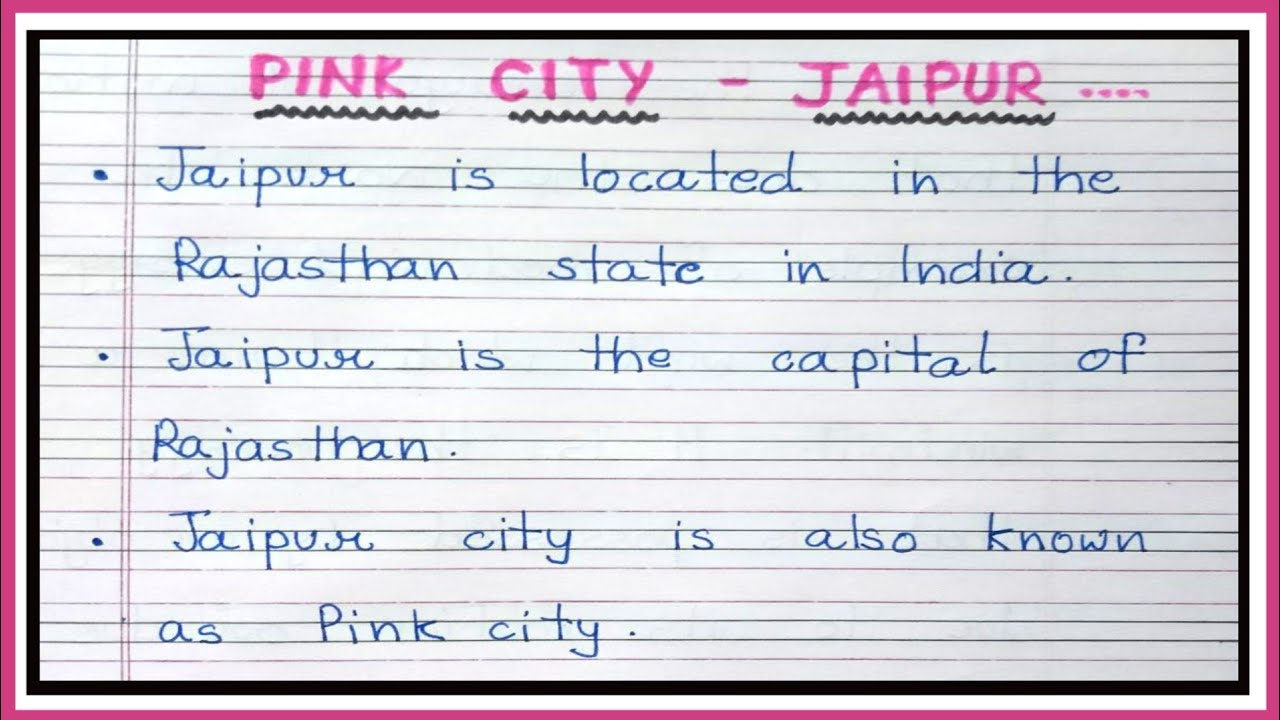 PINK CITY - JAIPUR ....
• Jaipur is located in the
Rajasthan state in India.
• Jaipur is the capital of
Rajasthan.
• Jaipur city is also known
as Pink city.